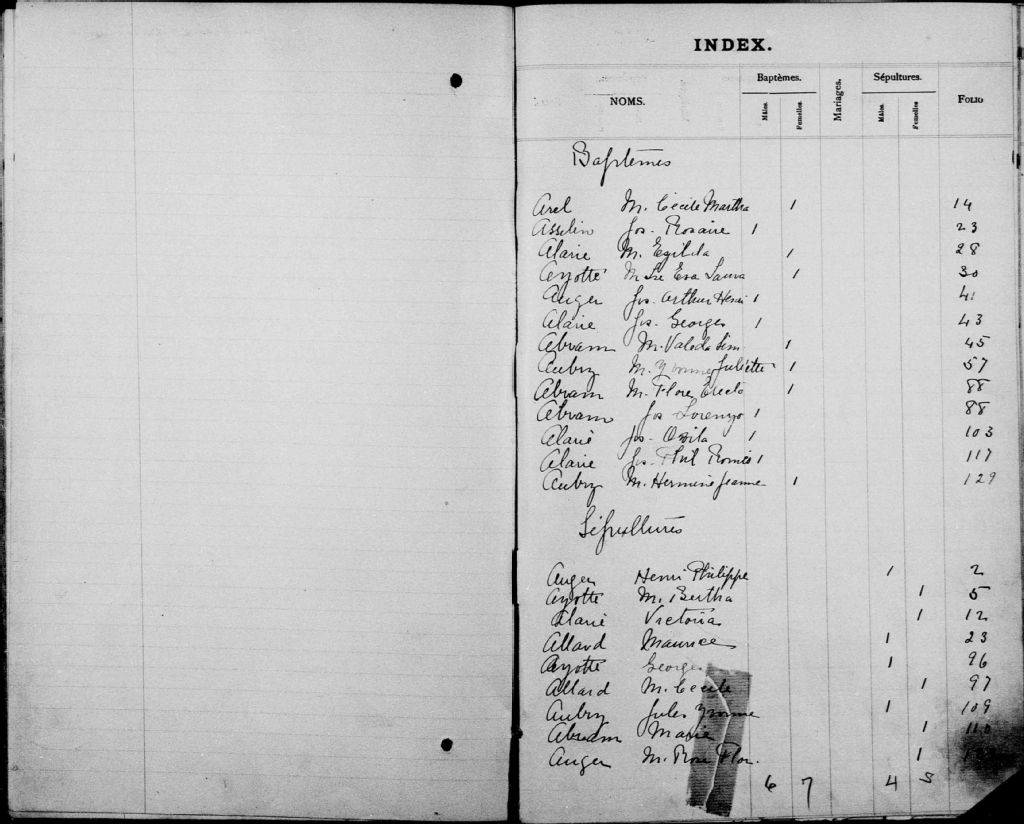 INDEX.
NOMS. Baptèmes. Mâles. Femelles Mariages. Sépultures. Mâles. Femelles Folio
Baptêmes
Arel M. Cécile Martha 1 14
Asselin Jos. Rosaire 1 23
Alarie M. Egilda 1 28
Ayotte M Eva Laura 1 30
Auger Jos. Arthur Henri 1 41
Alarie Jos. Georges 1 43
Abram M. Valeda 1 45
Aubry M. Yvonne Juliette 1 57
Abram M. Flore 1 88
Abram Jos Lorenzo 1 88
Alarie Jos. Ozila 1 103
Alarie Jos. Phil Roméo 1 117
Aubry M. Hermine Jeanne 1 129
Sépultures
Auger Henri Philippe 1 2
Ayotte M. Bertha 1 5
Alarie Victoria 1 12
Allard Maurice 1 23
Ayotte Georges 1 96
Allard M. Cecile 1 97
Aubry Jules Yvonne 1 109
Abram Marie 1 110
Auger M. Rose Flor. 1
6 7 4 5